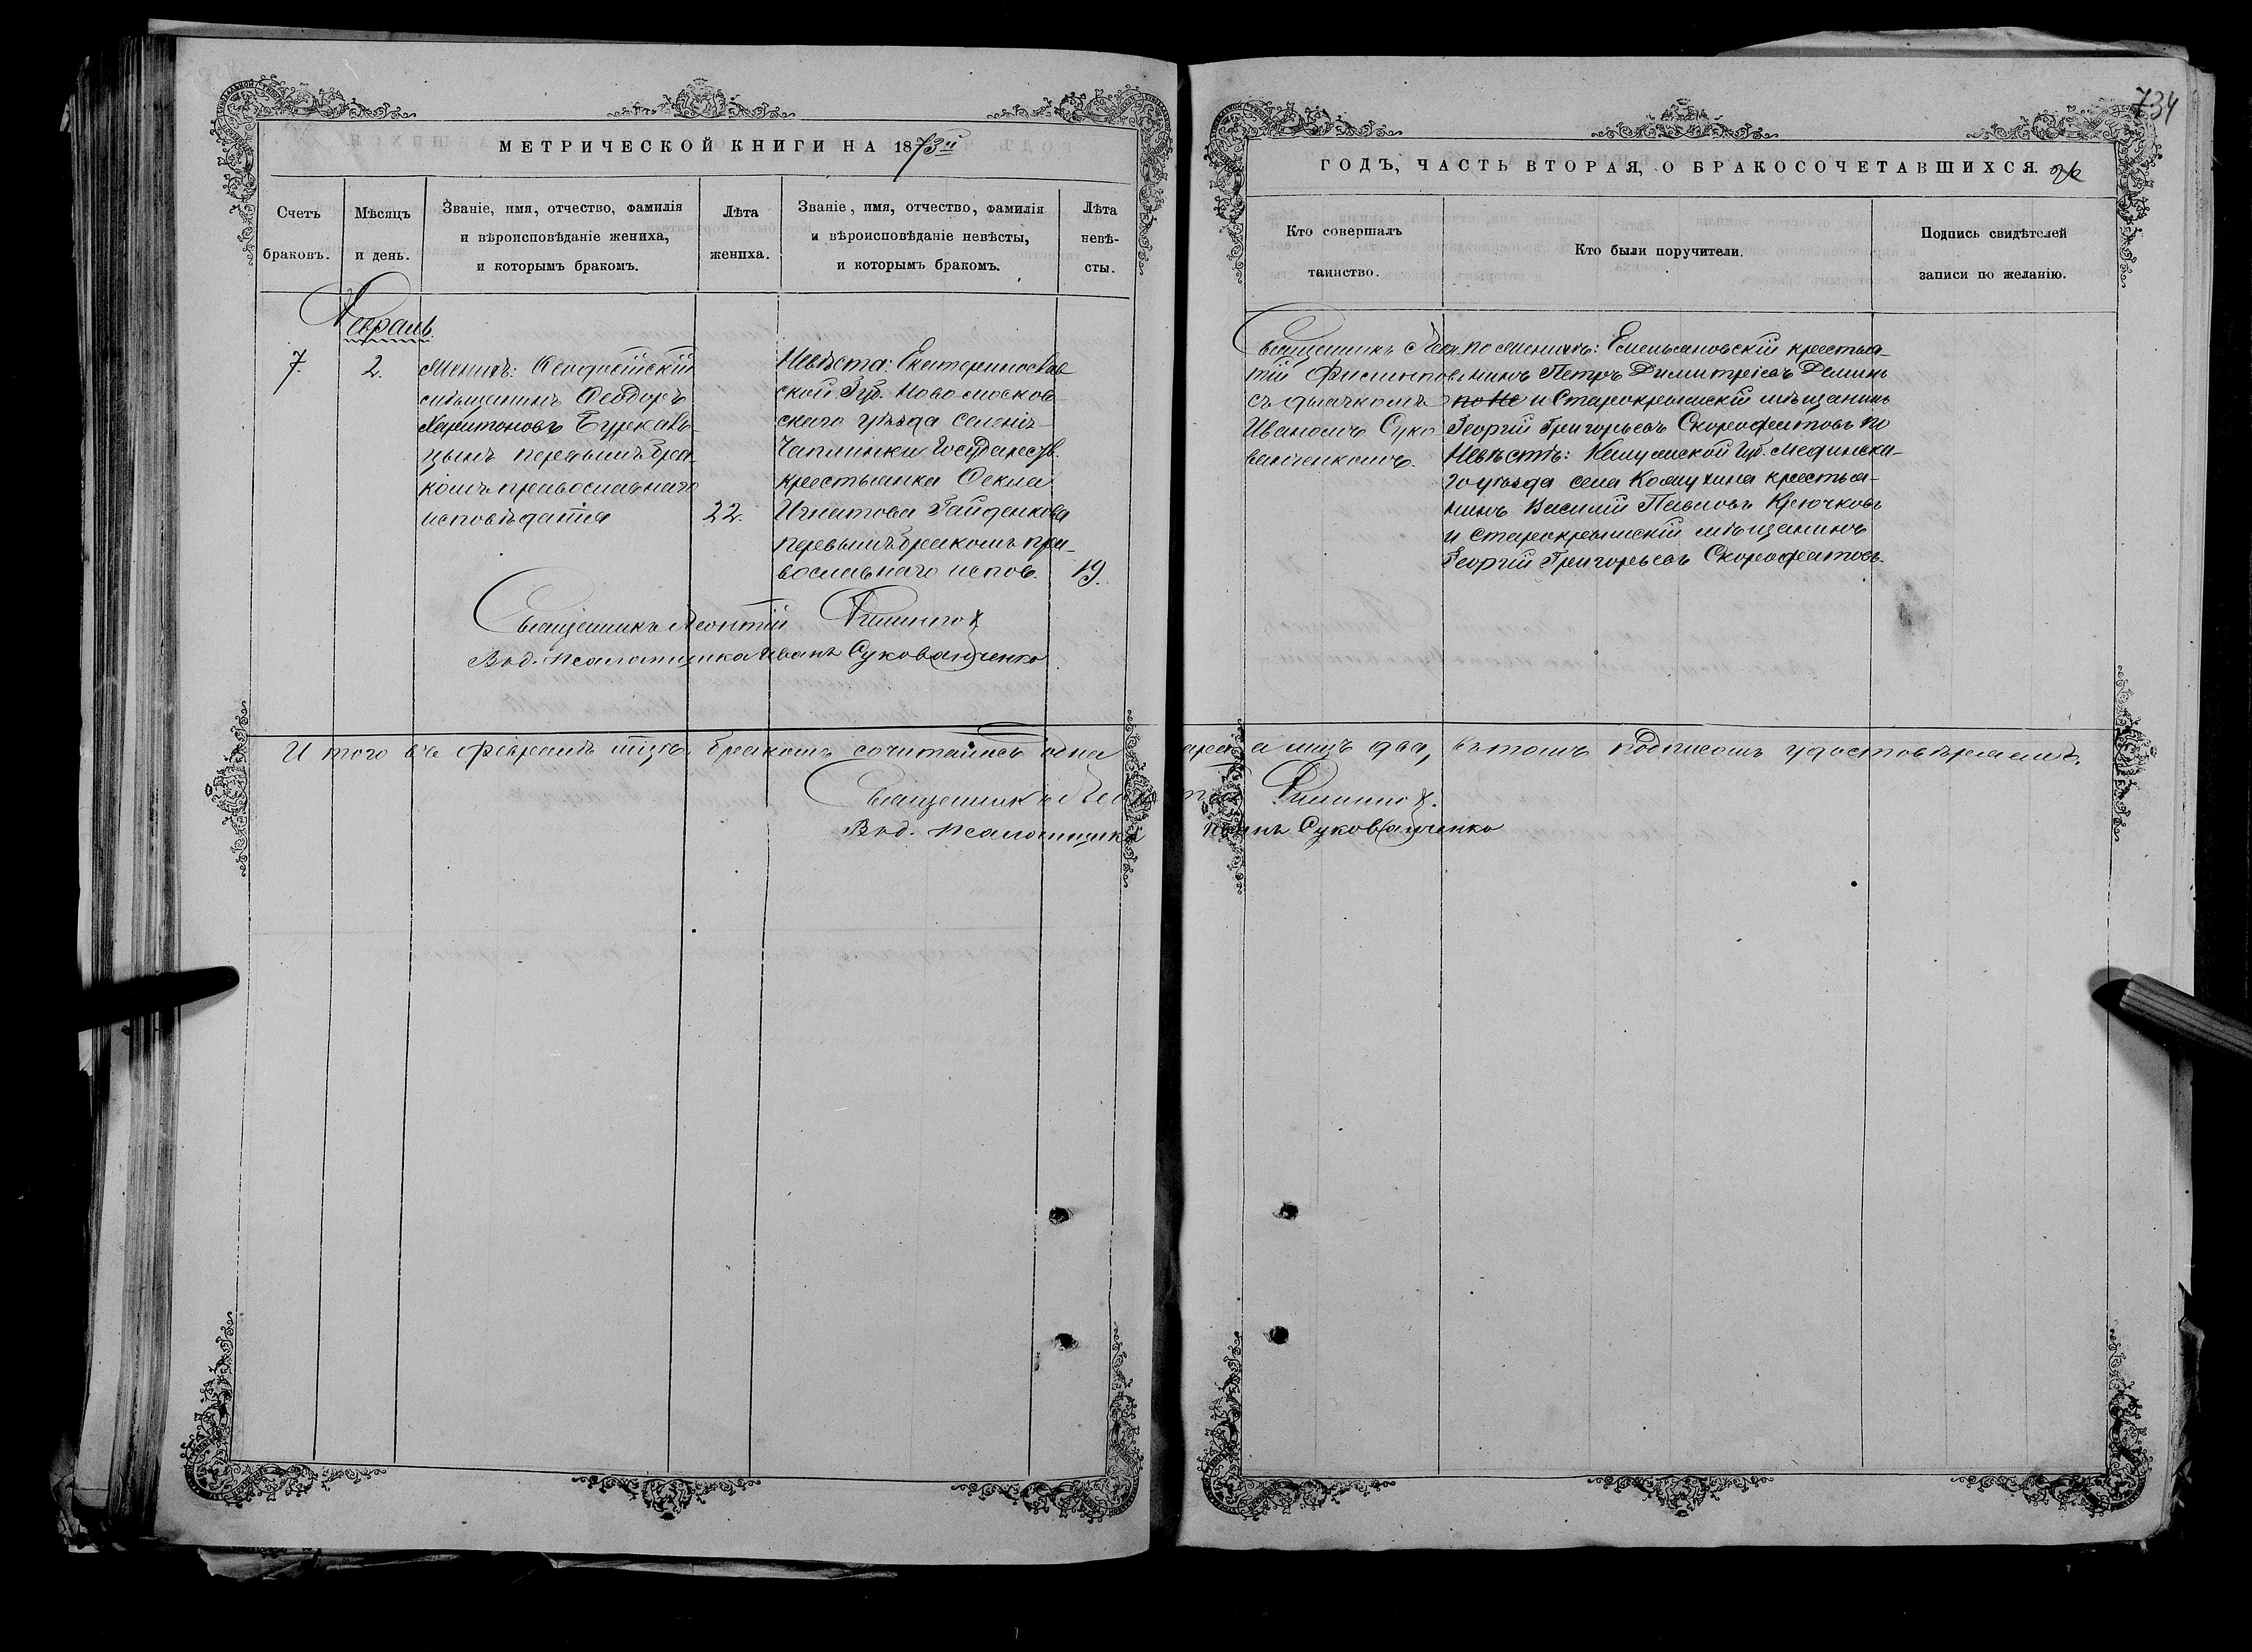 734
МЕТРИЧЕСКОЙ КНИГИ НА 1873й
ГОДЪ, ЧАСТЬ ВТОРАЯ, О БРАКОСОЧЕТАВШИХСЯ.
Счетъ браковъ.
Мѣсяцъ и день.
Званіе, имя, отчество, фамилія
и вѣроисповѣданіе жениха,
и которымъ бракомъ.
Лѣта жениха.
Званіе, имя, отчество, фамилія
и вѣроисповѣданіе невѣсты,
и которымъ бракомъ.
Лѣта невѣ-
сты.
Кто совершалъ
таинство.
Кто были поручители.
Подпись свидѣтелей
записи по желанію.
Февраль
7.
2.
Женихъ: Ѳеодосійскій
мѣщанинъ Ѳеодоръ
Харитоновъ
цынъ первымъ бра-
комъ православнаго
исповѣданія
22.
Невѣста: Екатеринослав
ской Губ. Новомосков
скаго уѣзда селенія
Чаплинки Государств.
крестьянка Ѳекла
Игнатова Гайденкова
первымъ бракомъ пра-
вославнаго испов.
19.
Священникъ Леон
тій Филиппов
съ дьячкомъ
Иваномъ Суко
ванченкомъ.
по женихѣ: Емельяновскій крестья-
нинъ Петръ Димитріевъ Деминъ
по не и Старокрымскій мѣщанинъ
Георгій Григорьевъ Скорофатовъ по
Невѣстѣ: Калужской Губ. Мединска-
го уѣзда села Кожухина крестья-
нинъ Василій Павловъ Крючковъ
и Старокрымскій мѣщанинъ
Георгій Григорьевъ Скорофатовъ.
Священникъ Леонтій
Псаломщика Иванъ Сукованченко
И того въ Февралѣ м-цѣ бракомъ сочитались одна пара а лицъ два, въ томъ подписомъ удостовѣряемъ
Священникъ Леонтій
Псаломщика Иванъ Сукованченко